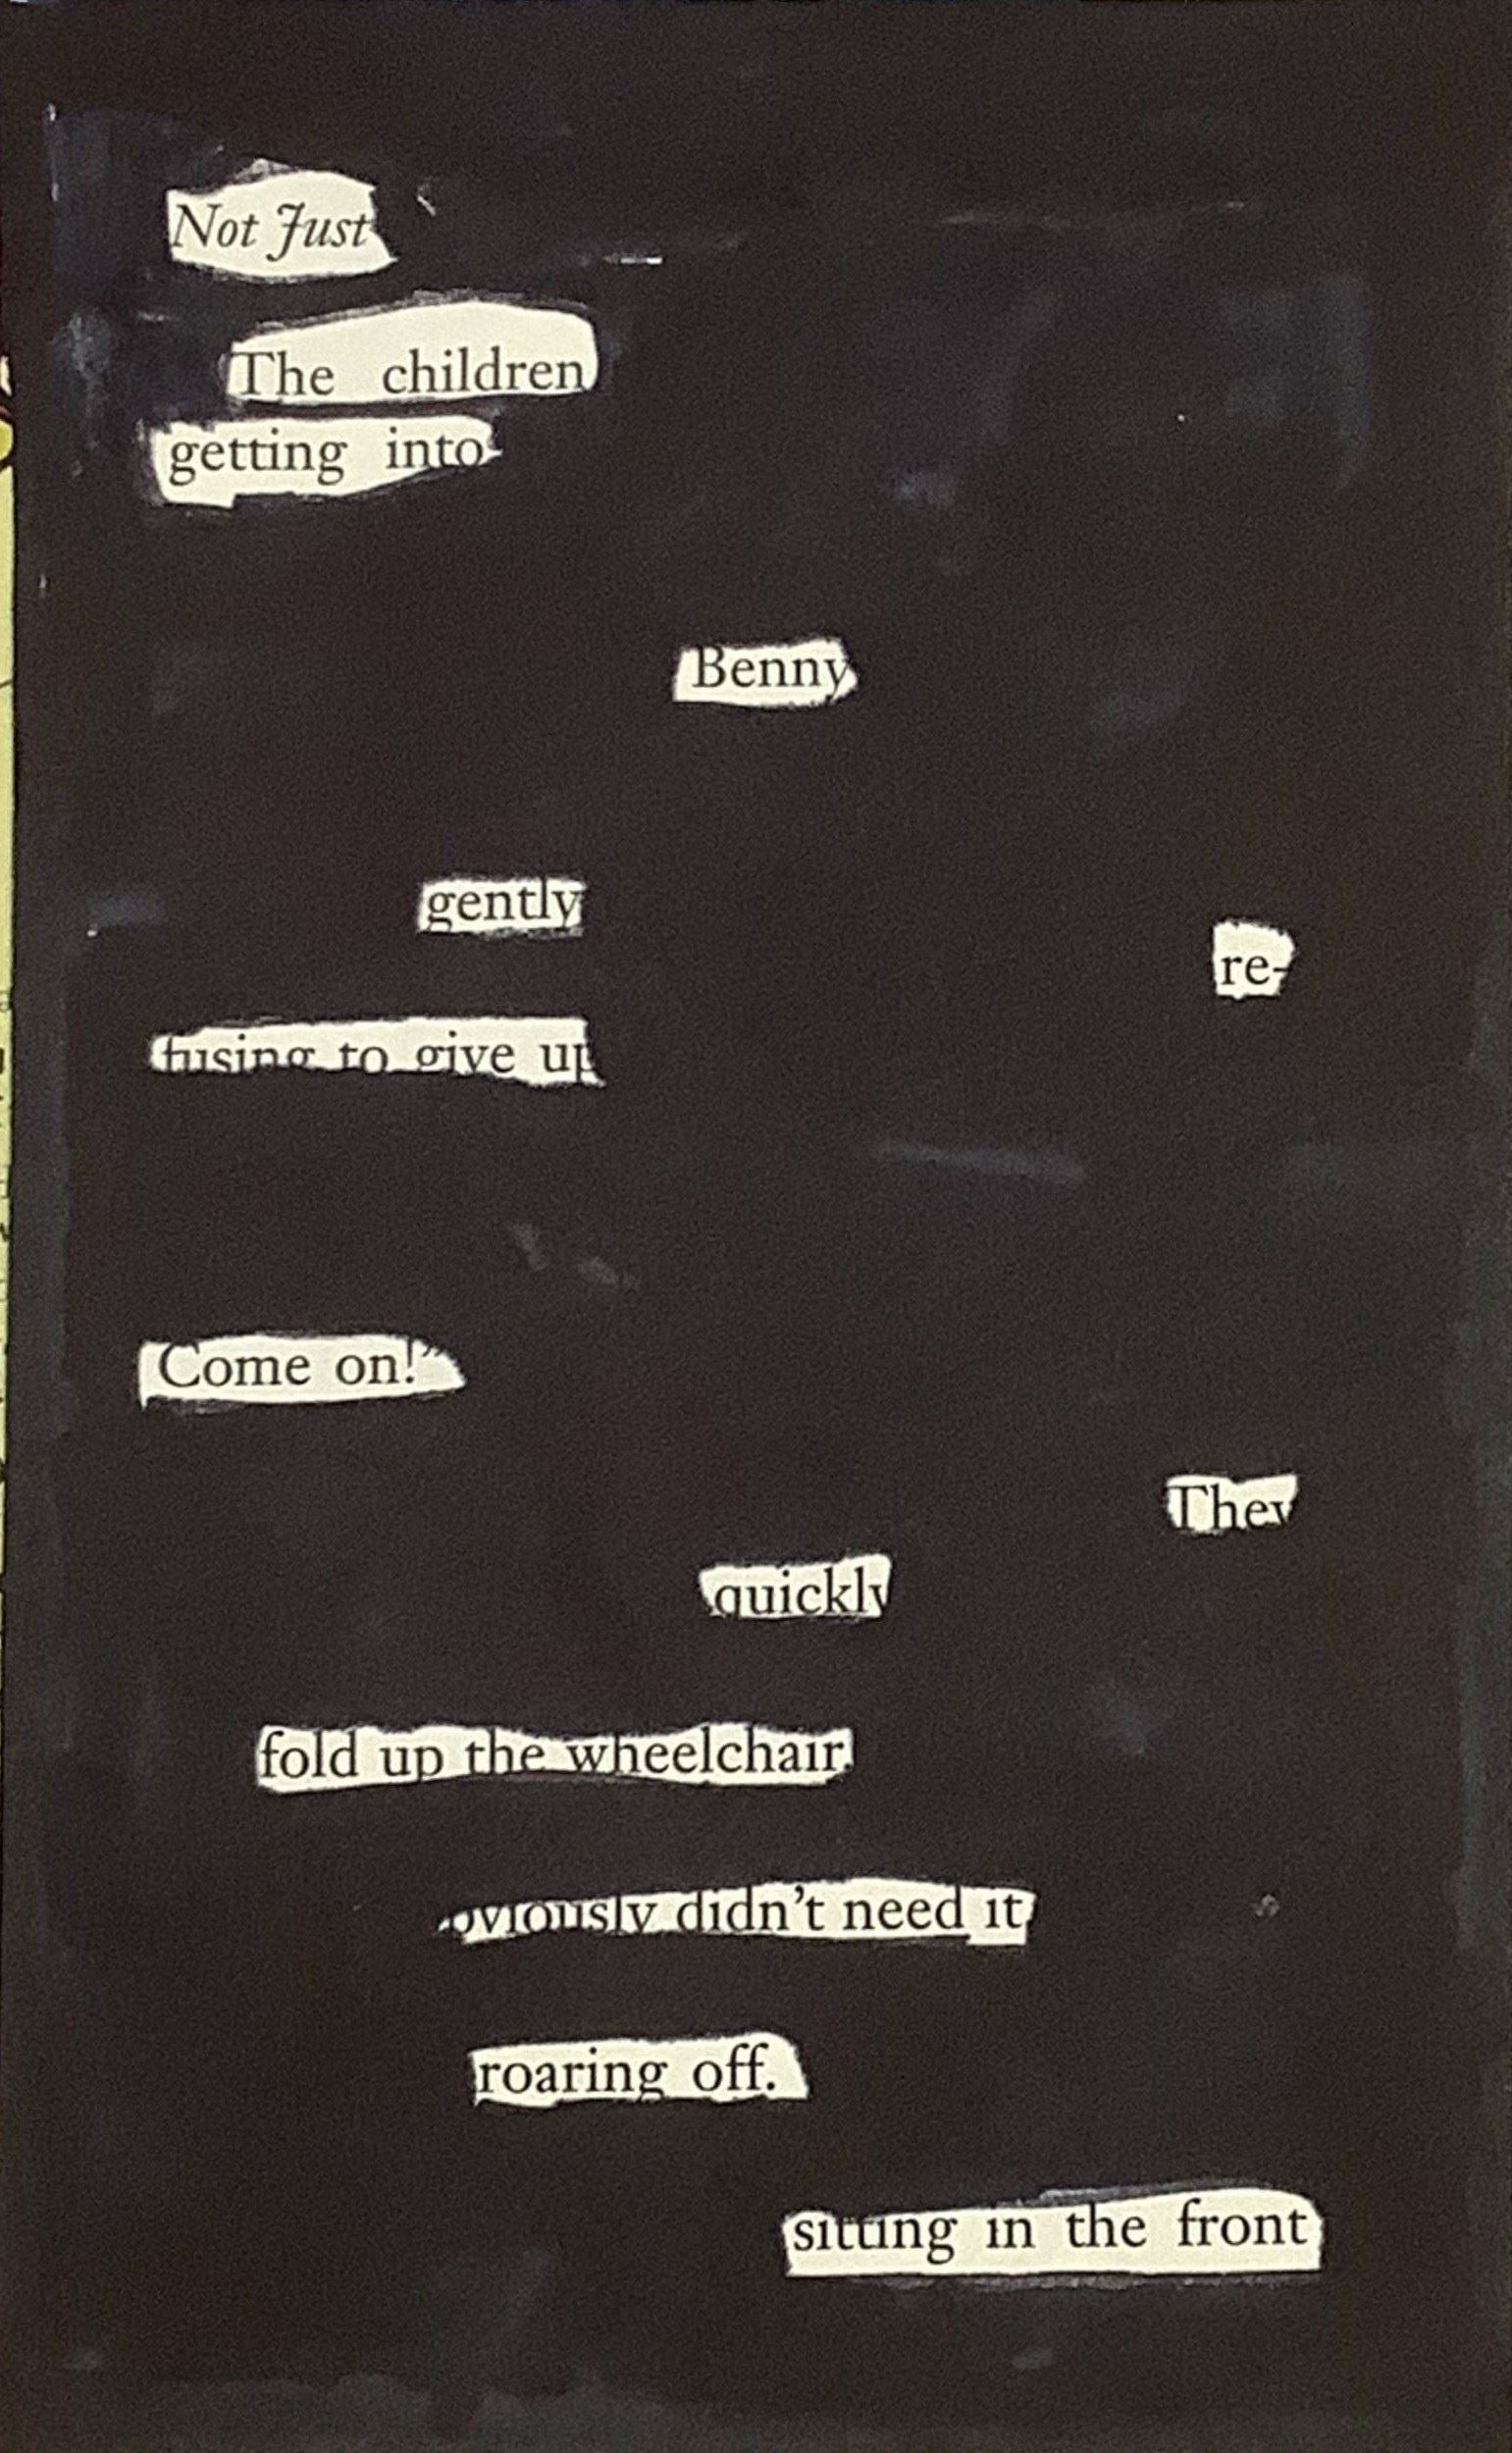 Not Just
The children
getting into
Benny
gently
re-
fusing to give up
Come on!”
They
quickly
fold up the wheelchair.
obviously didn’t need it
roaring off.
sitting in the front